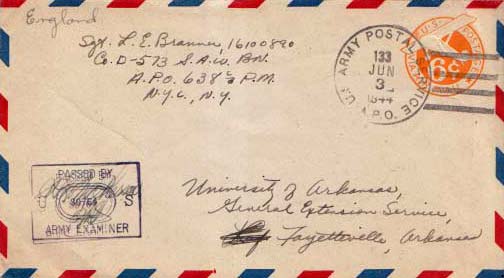 England
Sgt. L. E. Branner, 16100890
Co. D-573 S.A.W. BN.
A.P.O. 638 % P.M.
N.Y.C., N.Y.
U.S. ARMY POSTAL SERVICE
133
JUN
3
1944
A.P.O.
U.S. POSTAGE
VIA AIR
6¢
PASSED BY
U S
ARMY EXAMINER
University of Arkansas,
General Extension Service,
Fayetteville, Arkansas